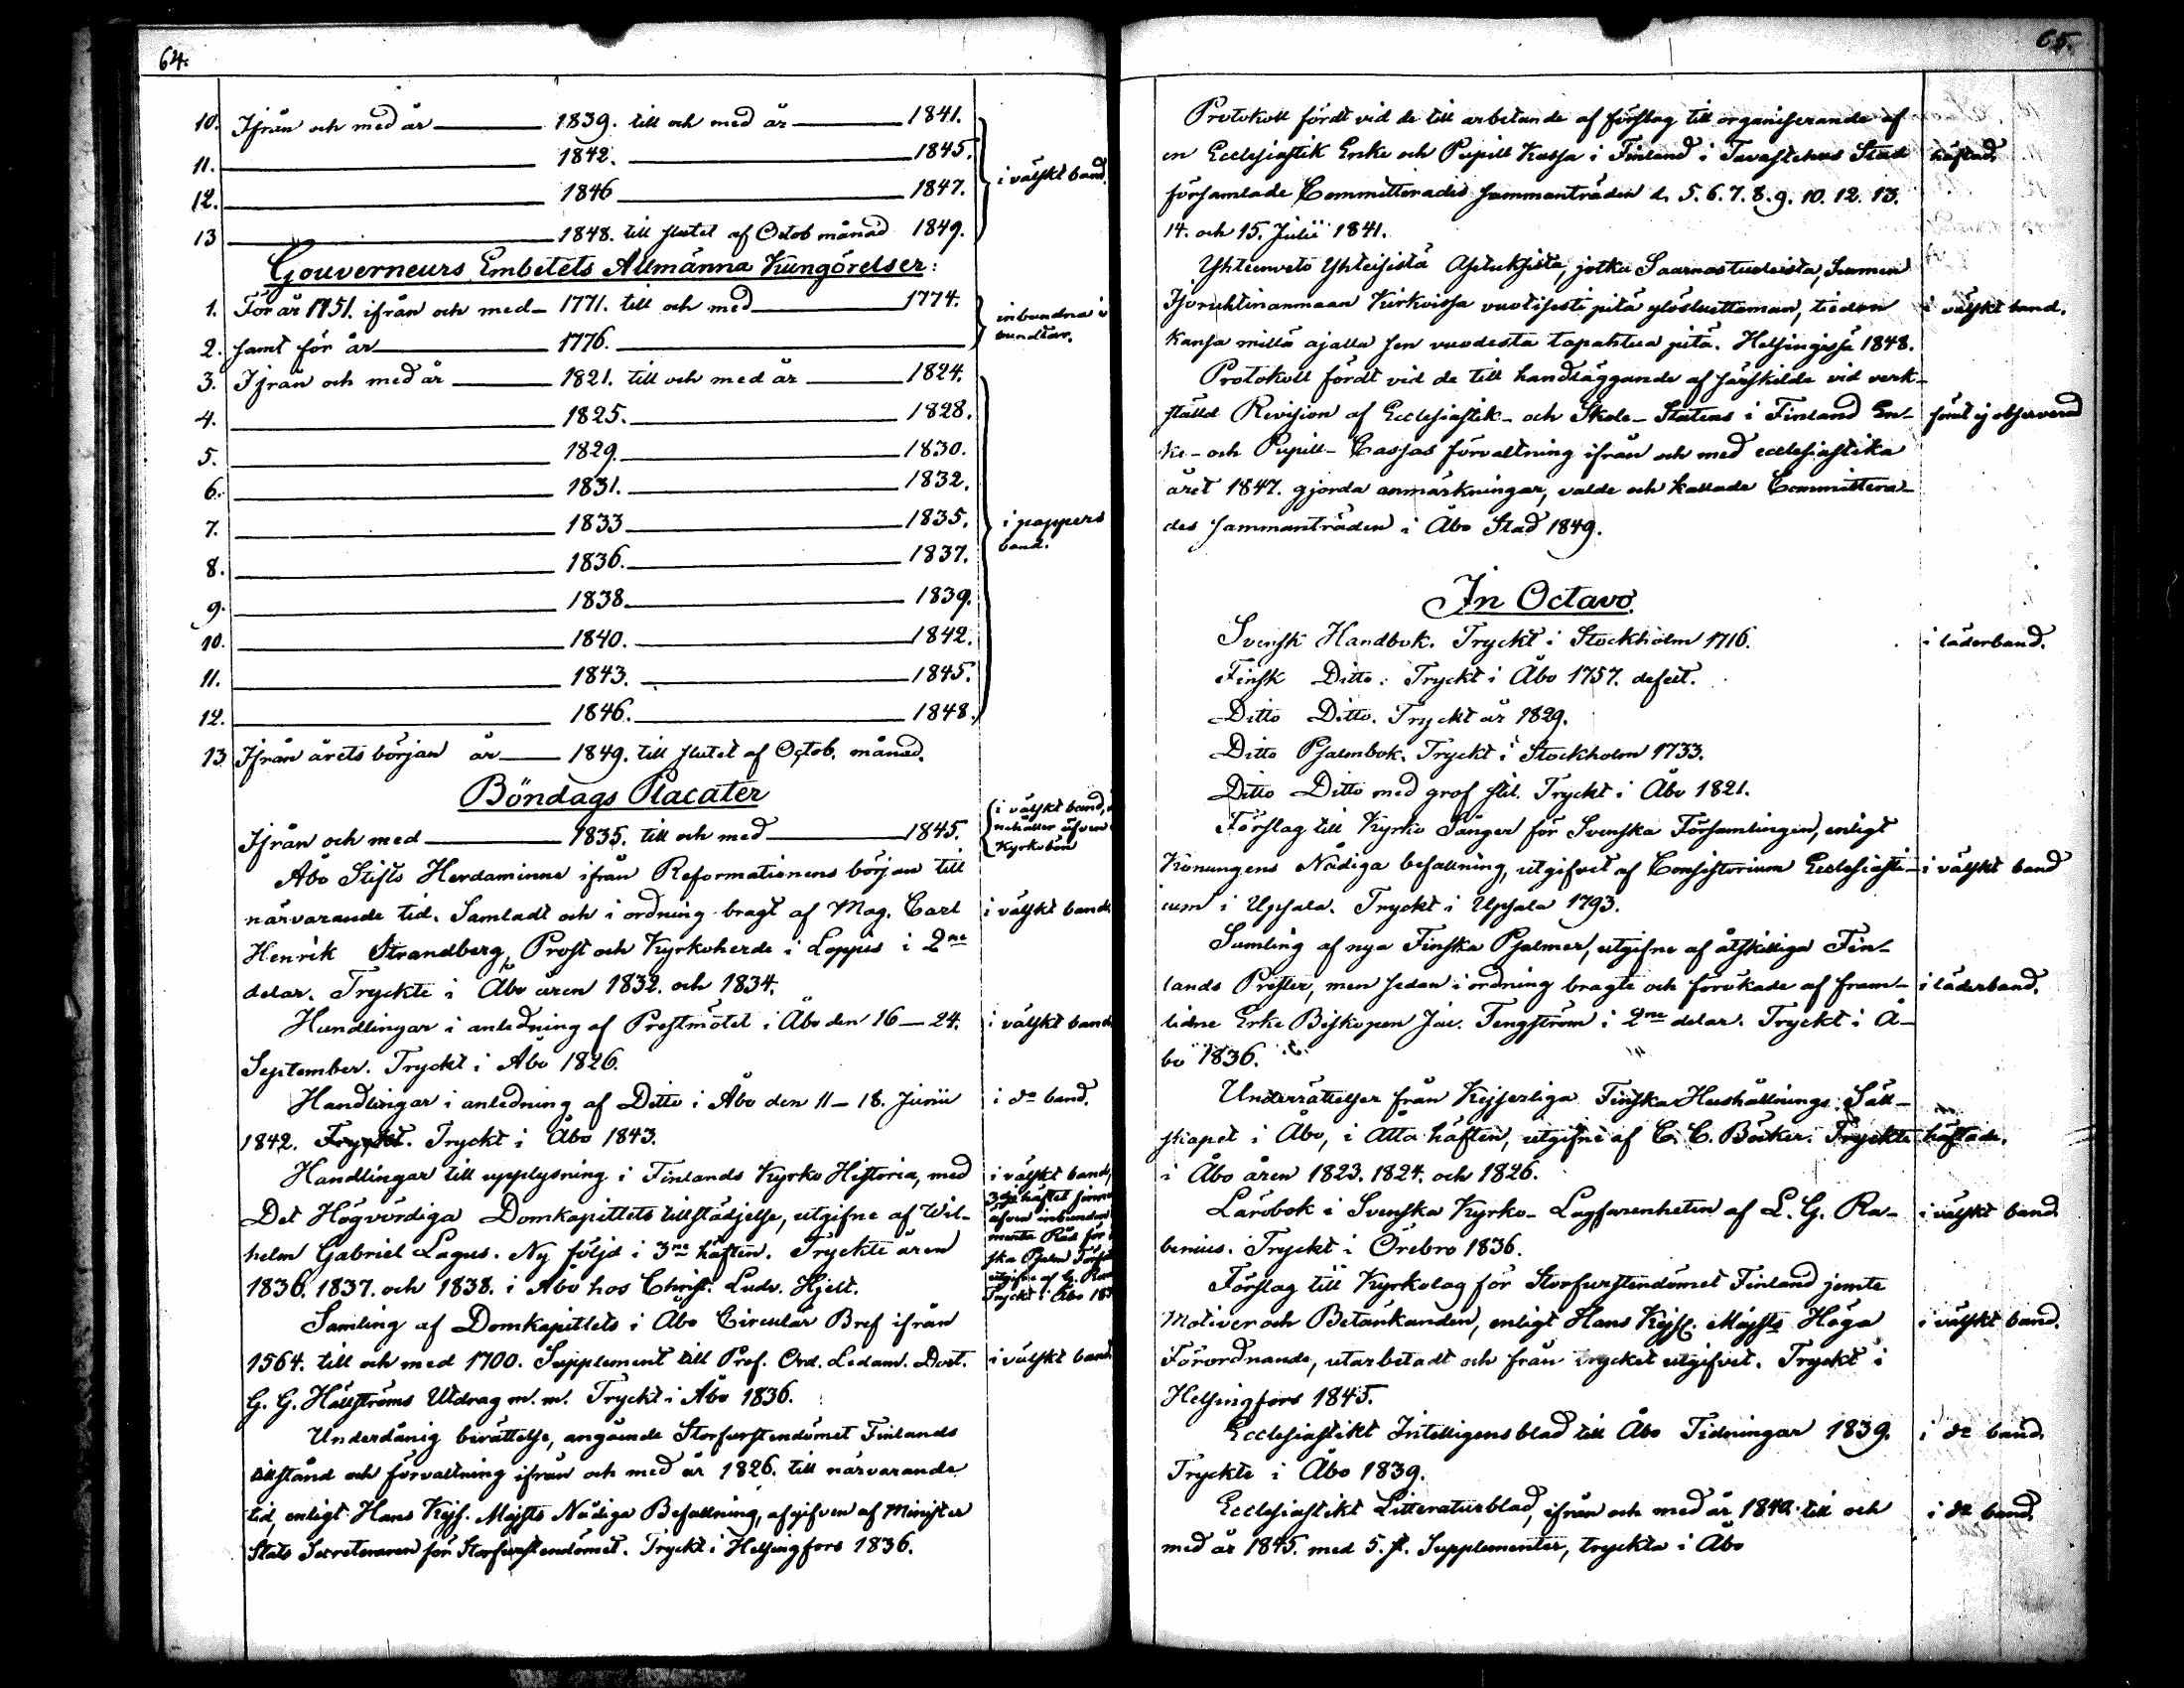 64.
10. Ifrån och med år 1839. till och med år 1841.
11. 1842. 1845.
12. 1846 1847.
13 1848. till slutet af Octob månad 1849.
i välskt band.
Gouverneurs Embetets Allmänna Kungörelser:
1. För år 1751. ifrån och med 1771. till och med 1774.
2. samt för år 1776.
inbundna i
bundtar.
3. Ifrån och med år 1821. till och med år 1824.
4. 1825. 1828.
5. 1829. 1830.
6. 1831. 1832.
7. 1833 1835.
8. 1836. 1837.
9. 1838 1839.
10. 1840. 1842.
11. 1843. 1845.
12. 1846. 1848.
i pappers
band.
13 Ifrån årets början år 1849. till slutet af Octob. månad.
Böndags Placater
Ifrån och med 1835. till och med 1845.
i välskt band,
nehåller äfven
Kyrkobön
Åbo Stifts Herdaminne ifrån Reformationens början till
närvarande tid. Samladt och i ordning bragt af Mag. Carl i välskt band
Henrik Strandberg, Prost och Kyrkoherde i Loppis i 2ne
delar. Tryckte i Åbo åren 1832. och 1834.
Handlingar i anledning af Prestmötet i Åbo den 16–24. i välskt band
September. Tryckt i Åbo 1826.
Handlingar i anledning af Ditto i Åbo den 11–18. Junii i do band.
1842. Tryckt. Tryckt i Åbo 1843.
Handlingar till upplysning i Finlands Kyrko Historia, med i välskt band,
Det Högvördiga Domkapitlets tillstädjelse, utgifne af Wil-
helm Gabriel Lagus. Ny följd i 3ne häften. Tryckte åren
1836. 1837. och 1838. i Åbo hos Christ. Ludv. Hjelt.
3dje häftet finnes
äfven inbundet
ska Psalm
utgifne af G.
Tryckt i Åbo 18
Samling af Domkapitlets i Åbo Circulär Bref ifrån
1564. till och med 1700. Supplement till Prof. Ord. Ledam. Doct. i välskt band
G. G. Hällströms Utdrag m. m. Tryckt i Åbo 1836.
Underdånig berättelse, angående Storfurstendömet Finlands
tillstånd och förvaltning ifrån och med år 1826. till närvarande
tid, enligt Hans Kejs. Majsts Nådiga Befallning, afgifven af Minister
Stats Secreteraren för Storfurstendömet. Tryckt i Helsingfors 1836.
65.
Protokoll fördt vid de till arbetande af förslag till organiserande af
en Ecclesiastik Enke och Pupill Kassa i Finland i Tavastehus Stad häftad.
församlade Committerades sammanträden d. 5. 6. 7. 8. 9. 10. 12. 13.
14. och 15. Julii 1841.
Yhteenveto Yhteisistä Asetuksista, jotka Saarnastuoleista, Suomen
Isoruhtinanmaan Kirkoissa vuotisesti pitä ylösluettaman, tiedon i välskt band.
kansa millä ajalla sen vuodesta tapahtua pitä. Helsingissä 1848.
Protokoll fördt vid de till handläggande af särskilde vid verk-
ställd Revision af Ecclesiastik- och Skole-Statens i Finland En- förut ej observerad
ke- och Pupill-Cassas förvaltning ifrån och med ecclesiastika
året 1847. gjorda anmärkningar, valde och kallade Committera-
des sammanträden i Åbo Stad 1849.
In Octavo.
Svensk Handbok. Tryckt i Stockholm 1716. i läderband.
Finsk Ditto: Tryckt i Åbo 1757. defect.
Ditto Ditto. Tryckt år 1829.
Ditto Psalmbok. Tryckt i Stockholm 1733.
Ditto Ditto med grof stil. Tryckt i Åbo 1821.
Förslag till Kyrko Sånger för Svenska Församlingen, enligt
Konungens Nådiga befallning, utgifvet af Consistorium Ecclesiasti- i välskt band
cum i Upsala. Tryckt i Upsala 1793.
Samling af nya Finska Psalmer, utgifne af åtskilliga Fin-
lands Prester, men sedan i ordning bragte och förökade af fram- i läderband.
lidne Erke Biskopen Jac. Tengström i 2ne delar. Tryckt i Å-
bo 1836.
Underrättelser från Kejserliga Finska Hushållnings Säll-
skapet i Åbo, i Åtta häften, utgifne af C. C. Böcker. Tryckte häftade.
i Åbo åren 1823. 1824. och 1826.
Lärobok i Svenska Kyrko-Lagfarenheten af L. G. Ra- i välskt band
benius. Tryckt i Örebro 1836.
Förslag till Kyrkolag för Storfurstendömet Finland jemte
Motiver och Betänkanden, enligt Hans Kejs. Majsts Höga i välskt band.
Förordnande, utarbetadt och från trycket utgifvet. Tryckt i
Helsingfors 1845.
Ecclesiastikt Intelligensblad till Åbo Tidningar 1839. i do band.
Tryckte i Åbo 1839.
Ecclesiastikt Litteraturblad, ifrån och med år 1840. till och i do band.
med år 1845. med 5. st. Supplementer, tryckta i Åbo